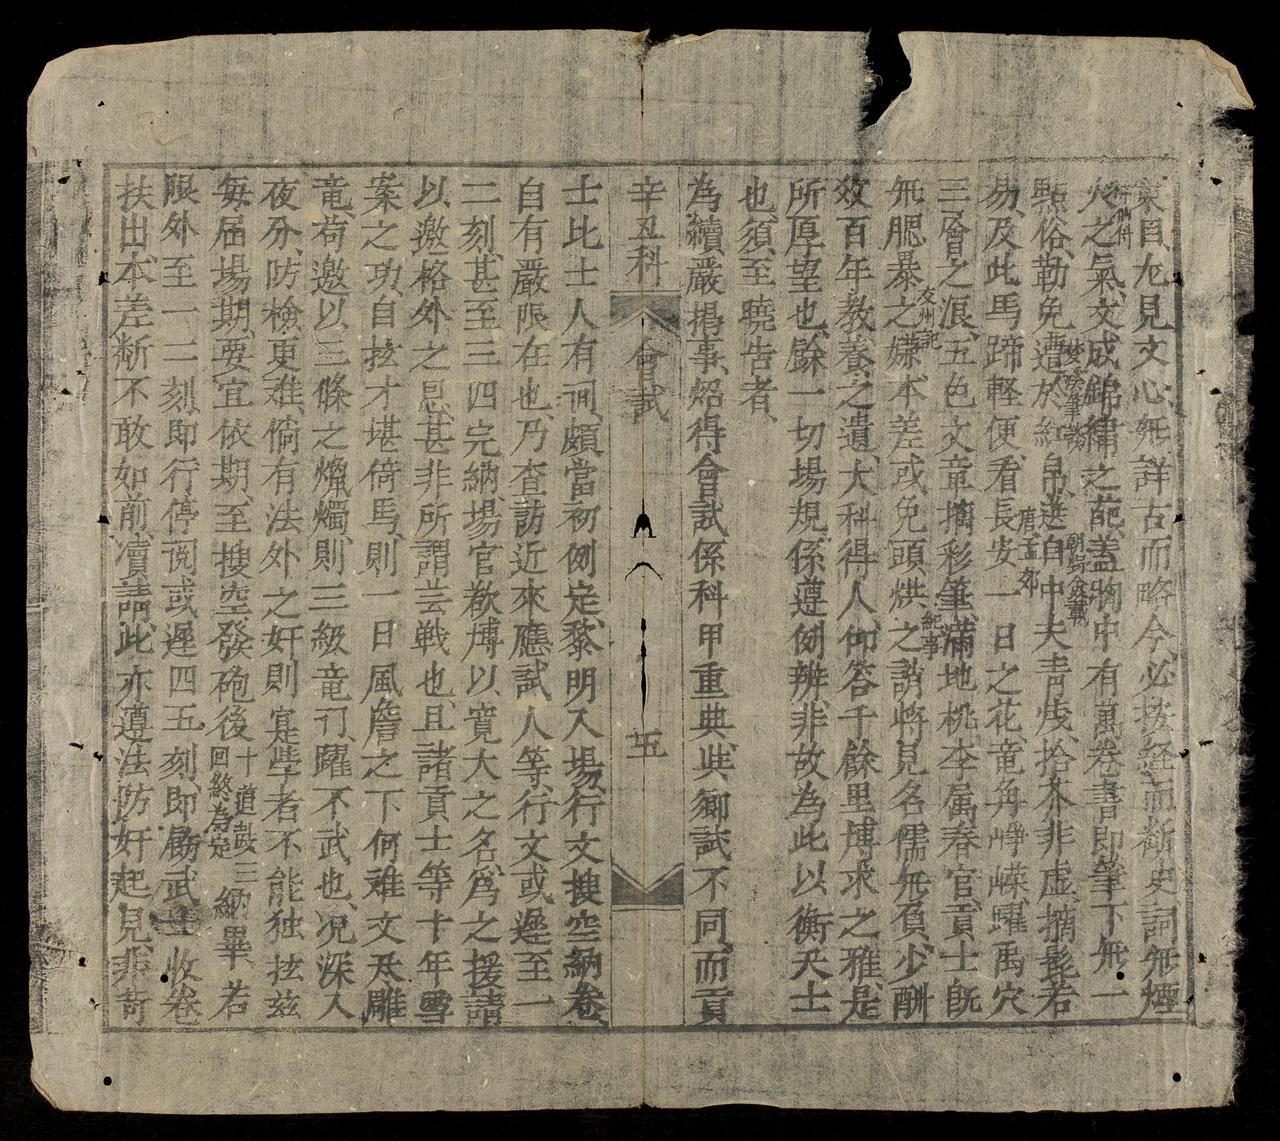 策目、尤見文心、無詳古而略今、必按経而断史、詞無煙
火之氣、文成錦繡之葩、盖物中有萬卷書、即筆下無一
點俗、勒免遭於紅帛、選自中夫青戋拾芥非虛、摘髭若
易、及此馬蹄軽便、看長安一日之花、竜角崢嶸、躍禹穴
三層之浪、五色文章摛彩筆、滿地桃李属春官、貢士旣
無腮暴之嫌、本差或免頭烘之誚、將見名儒無負、少酬
效百年教養之遺、大科得人、仰答千餘里博求之雅、是
所厚望也、餘一切場規、係遵例辨、非故為此以衡天士
也、須至曉告者、
為續嚴揭事、炤得會試係科甲重典、與鄉試不同、而貢
辛丑科
會試
五
士比士人有间、頗當初例定、黎明入場、行文搜空納卷、
自有嚴限在也、乃查訪近來應試人等、行文或遲至一
二刻、甚至三四完納、場官欲博以寬大之名、為之援請
以邀格外之恩、甚非所謂芸戦也、且諸貢士等十年雪
案之功、自㧋才堪倚馬、則一日風簷之下、何难文炙雕
竜、苟邀以三條之爥燭、則三級竜订、躍不武也、况深入
夜分、防檢更难、倘有法外之奸、則寔學者不能独㧋、兹
每届場期、要宜依期、至搜空發砲後
十道鼓三
回終為定
納畢、若
限外至一二刻、即行停閱、或遲四五刻、即勵武士收卷
扶出、本差断不敢如前瀆請、此亦遵法防奸起見、非苛